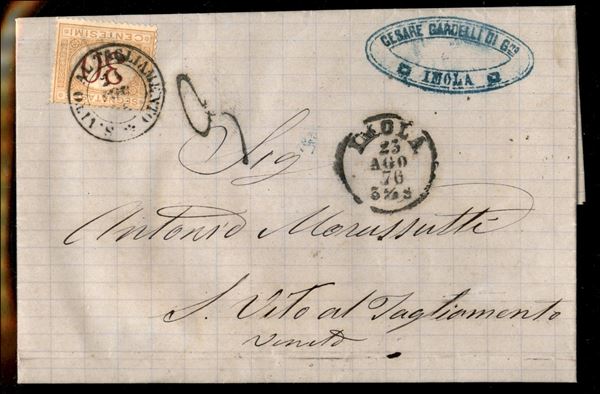 CENTESIMI
S. VITO AL TAGLIAMENTO
CESARE GARDELLI DI G.
IMOLA
IMOLA
23
AGO
76
3½ S
Sig
Antonio Morassutti
S. Vito al Tagliamento
Veneto